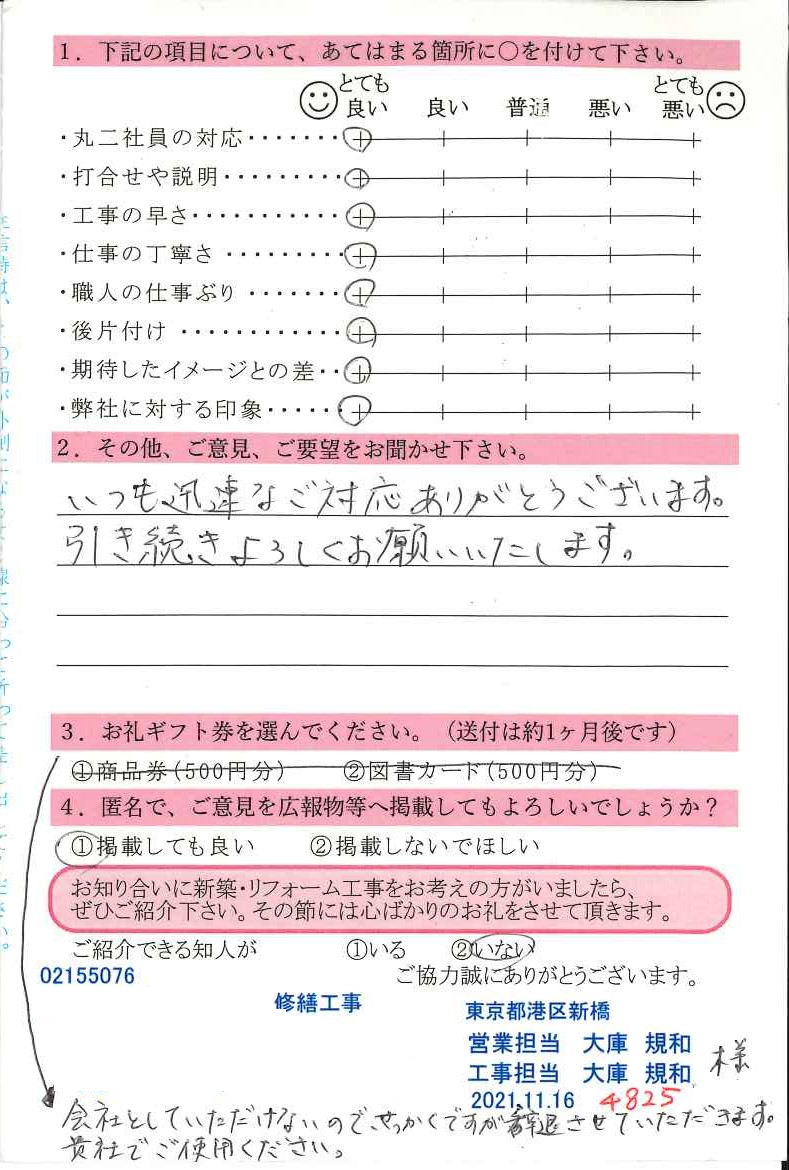 1．下記の項目について、あてはまる箇所に○を付けて下さい。
とても良い 良い 普通 悪い とても悪い
・丸二社員の対応・・・・・・・
・打合せや説明・・・・・・・・・
・工事の早さ・・・・・・・・・・・
・仕事の丁寧さ・・・・・・・・・
・職人の仕事ぶり・・・・・・・・
・後片付け・・・・・・・・・・・・
・期待したイメージとの差・・
・弊社に対する印象・・・・・・
2．その他、ご意見、ご要望をお聞かせ下さい。
いつも迅速なご対応ありがとうございます。
引き続きよろしくお願いいたします。
3．お礼ギフト券を選んでください。（送付は約1ヶ月後です）
①商品券（500円分） ②図書カード（500円分）
4．匿名で、ご意見を広報物等へ掲載してもよろしいでしょうか？
①掲載しても良い ②掲載しないでほしい
お知り合いに新築・リフォーム工事をお考えの方がいましたら、
ぜひご紹介下さい。その節には心ばかりのお礼をさせて頂きます。
ご紹介できる知人が ①いる ②いない
02155076 ご協力誠にありがとうございます。
修繕工事 東京都港区新橋
営業担当 大庫 規和
工事担当 大庫 規和 様
2021.11.16 4825
会社としていただけないのでせっかくですが辞退させていただきます。
貴社でご使用ください。